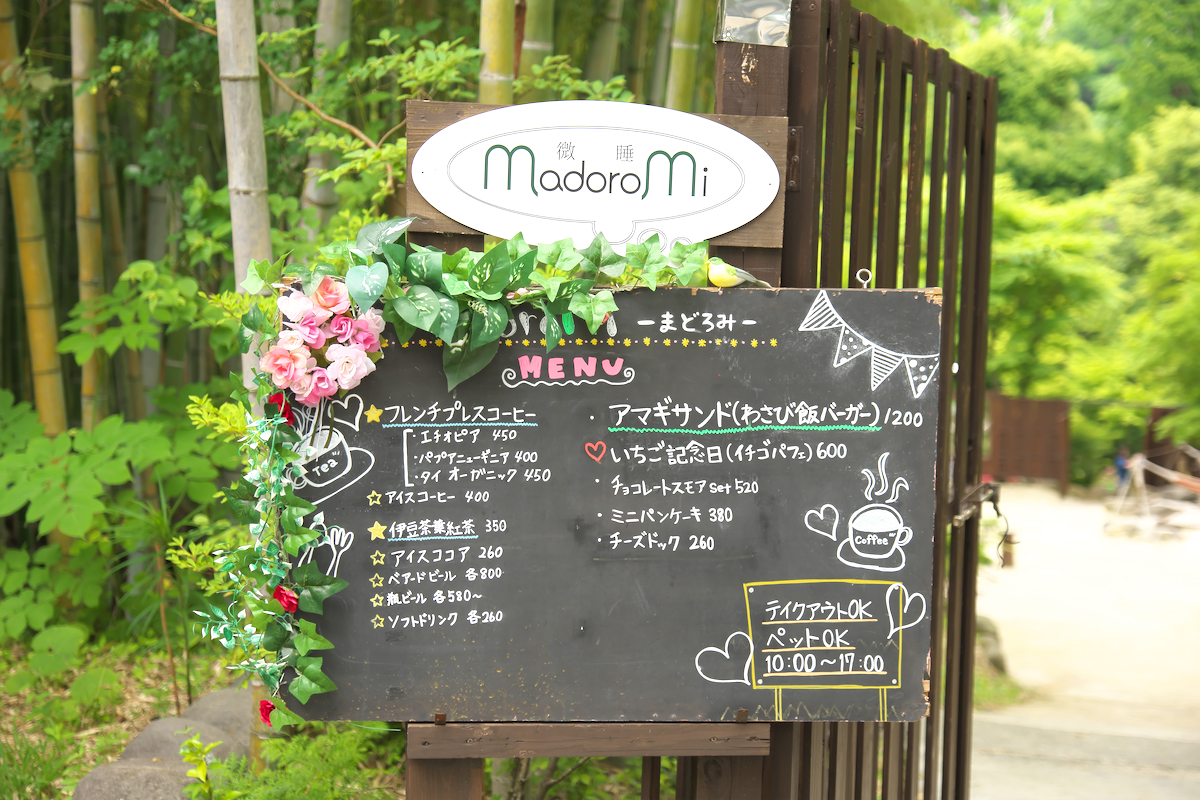 微睡
MadoroMi
ーまどろみー
MENU
フレンチプレスコーヒー
・エチオピア 450
・パプアニューギニア 400
・タイ オーガニック 450
アイスコーヒー 400
伊豆茶葉紅茶 350
アイスココア 260
ベアードビール 各800
瓶ビール 各580〜
ソフトドリンク 各260
Tea
・アマギサンド(わさび飯バーガー)1200
いちご記念日(イチゴパフェ)600
・チョコレートスモアset 520
・ミニパンケーキ 380
・チーズドック 260
Coffee
テイクアウトOK
ペットOK
10:00〜17:00